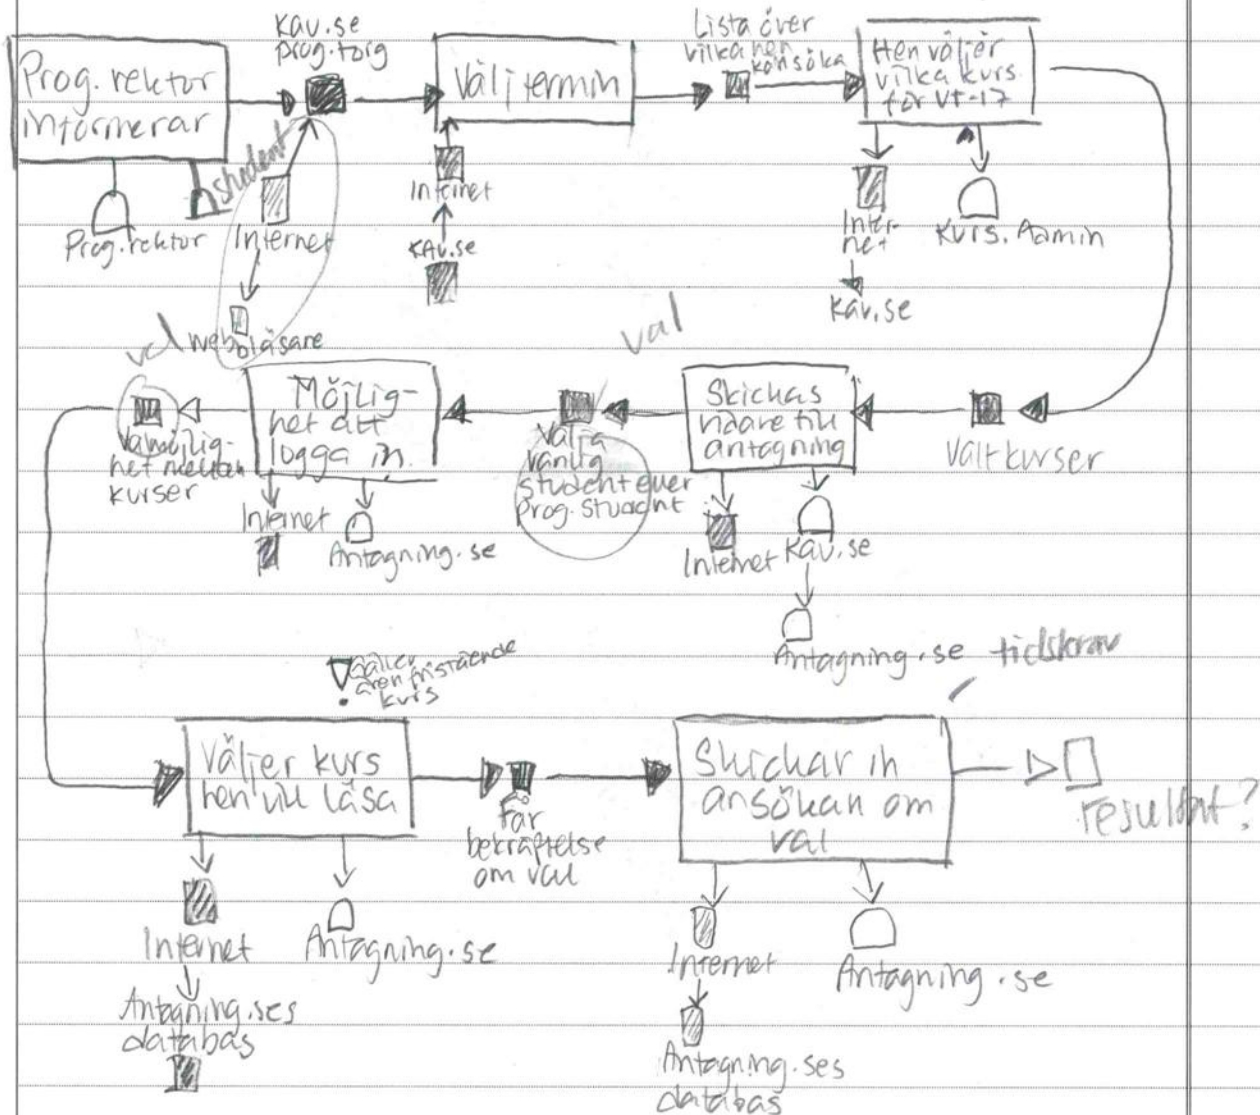 Kau.se
prog.torg
Prog. rektor
informerar
Välj termin
Lista över
vilka hen
kan söka
Hen väljer
vilka kurs
för VT-17
student
Prog.rektor
Internet
webbläsare
Internet
Kau.se
Inter-
net
Kau.se
Kurs. Admin
val
val
Möjlig-
het att
logga in.
Välja
vanlig
student eller
prog. student
Skickas
vidare till
antagning
Valt kurser
kurser
Internet
Antagning.se
Internet
Kau.se
Antagning.se
tidskrav
Gäller
även fristående
kurs
Väljer kurs
hen vill läsa
Får
bekräftelse
om val
Skickar in
ansökan om
val
resultat?
Internet
Antagning.se
Antagning.ses
databas
Internet
Antagning.se
Antagning.ses
databas